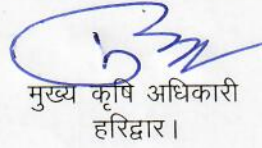 मुख्य कृषि अधिकारी
हरिद्वार।